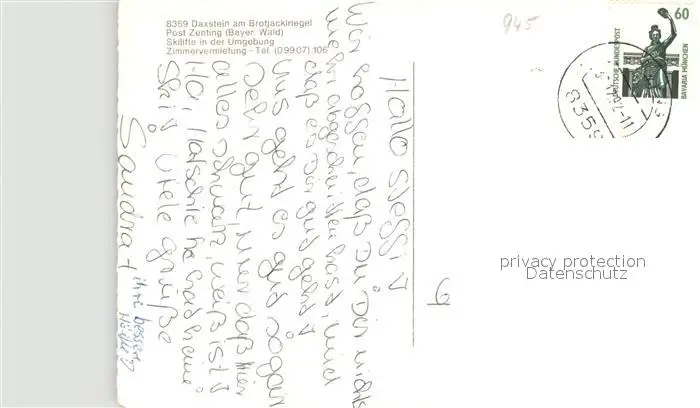 8359 Daxstein am Brotjacklriegel
Post Zenting (Bayer. Wald)
Skilifte in der Umgebung
Zimmervermietung - Tel. (09907) 106
945
60
DEUTSCHE BUNDESPOST
BAVARIA MÜNCHEN
8359
Hallo Steffi!
Wir hoffen, daß Du Dir nichts
mehr abgeschnitten hast, und
daß es Dir gut geht!
Uns geht es gut sogar
sehr gut, nur daß hier
alles schwarz, weiß ist!
Ha,
Ski! Viele Grüße
Sandra +
ihre bessere
Hälfte
privacy protection
Datenschutz